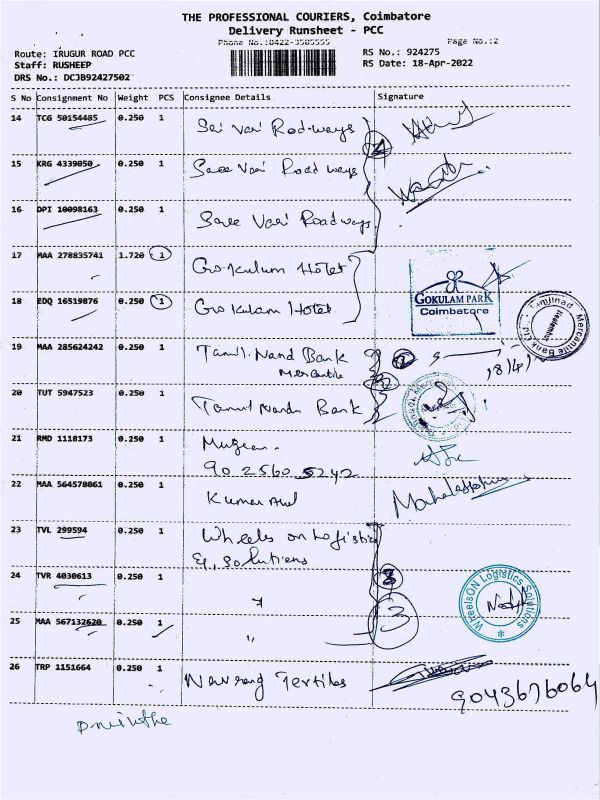 THE PROFESSIONAL COURIERS, Coimbatore
Delivery Runsheet - PCC
Phone No.:0422-3585555 Page No.:2
Route: IRUGUR ROAD PCC RS No.: 924275
Staff: RUSHEEP RS Date: 18-Apr-2022
DRS No.: DCJB92427502
S No Consignment No Weight PCS Consignee Details Signature
14 TCG 50154485 0.250 1 Sri Vari Roadways
15 KRG 4339050 0.250 1 Saree Vari Roadways
16 DPI 10098163 0.250 1 Saree Vari Roadways
17 MAA 278835741 1.720 1 Gokulum Hotel
GOKULAM PARK
Coimbatore
18 EDQ 16519876 0.250 1 Gokulam Hotel
Tamilnad Mercantile Bank Ltd
19 MAA 285624242 0.250 1 Tamil Nand Bank
Mercantile
20 TUT 5947523 0.250 1 Tamil Nandu Bank
21 RMD 1118173 0.250 1
90 2560 5242
22 MAA 564578061 0.250 1 Kumar
23 TVL 299594 0.250 1 Wheels on Logistic
&, Solutions
24 TVR 4030613 0.250 1
3
WheelsON Logistics Solutions
25 MAA 567132620 0.250 1 "
26 TRP 1151664 0.250 1 Navrang Textiles
9043676064